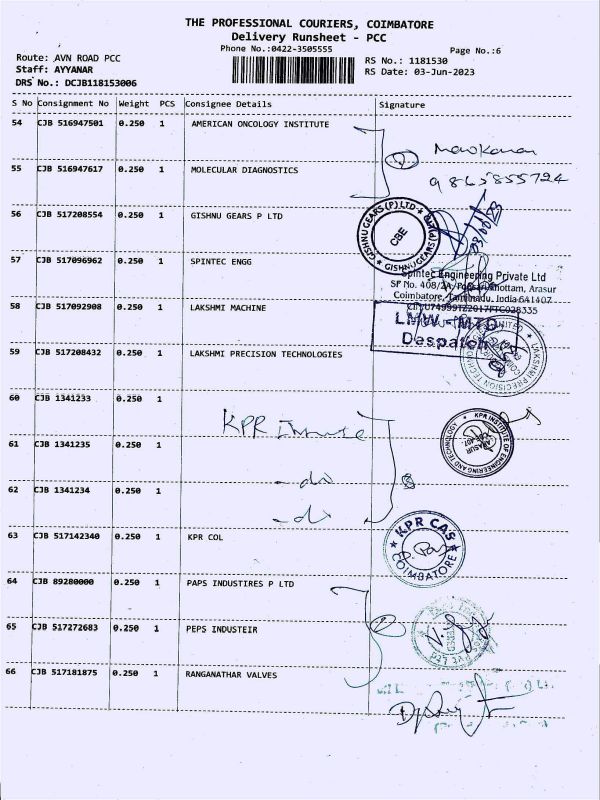 THE PROFESSIONAL COURIERS, COIMBATORE
Delivery Runsheet - PCC
Phone No.:0422-3505555
Page No.:6
Route: AVN ROAD PCC
Staff: AYYANAR
DRS No.: DCJB118153006
RS No.: 1181530
RS Date: 03-Jun-2023
S No Consignment No Weight PCS Consignee Details Signature
54 CJB 516947501 0.250 1 AMERICAN ONCOLOGY INSTITUTE
55 CJB 516947617 0.250 1 MOLECULAR DIAGNOSTICS
9865855724
56 CJB 517208554 0.250 1 GISHNU GEARS P LTD
GISHNU GEARS (P) LTD
CBE
57 CJB 517096962 0.250 1 SPINTEC ENGG
Spintec Engineering Private Ltd
SF No. 408/2A, Thottam, Arasur
Coimbatore, Tamilnadu, India 641407
58 CJB 517092908 0.250 1 LAKSHMI MACHINE
LMW - MTD
Despatch
59 CJB 517208432 0.250 1 LAKSHMI PRECISION TECHNOLOGIES
LAKSHMI PRECISION
60 CJB 1341233 0.250 1
KPR
KPR INSTITUTE OF ENGINEERING AND TECHNOLOGY
ARASUR
61 CJB 1341235 0.250 1
62 CJB 1341234 0.250 1
- do
- do
63 CJB 517142340 0.250 1 KPR COL
KPR CAS
COIMBATORE
64 CJB 89280000 0.250 1 PAPS INDUSTIRES P LTD
65 CJB 517272683 0.250 1 PEPS INDUSTEIR
66 CJB 517181875 0.250 1 RANGANATHAR VALVES